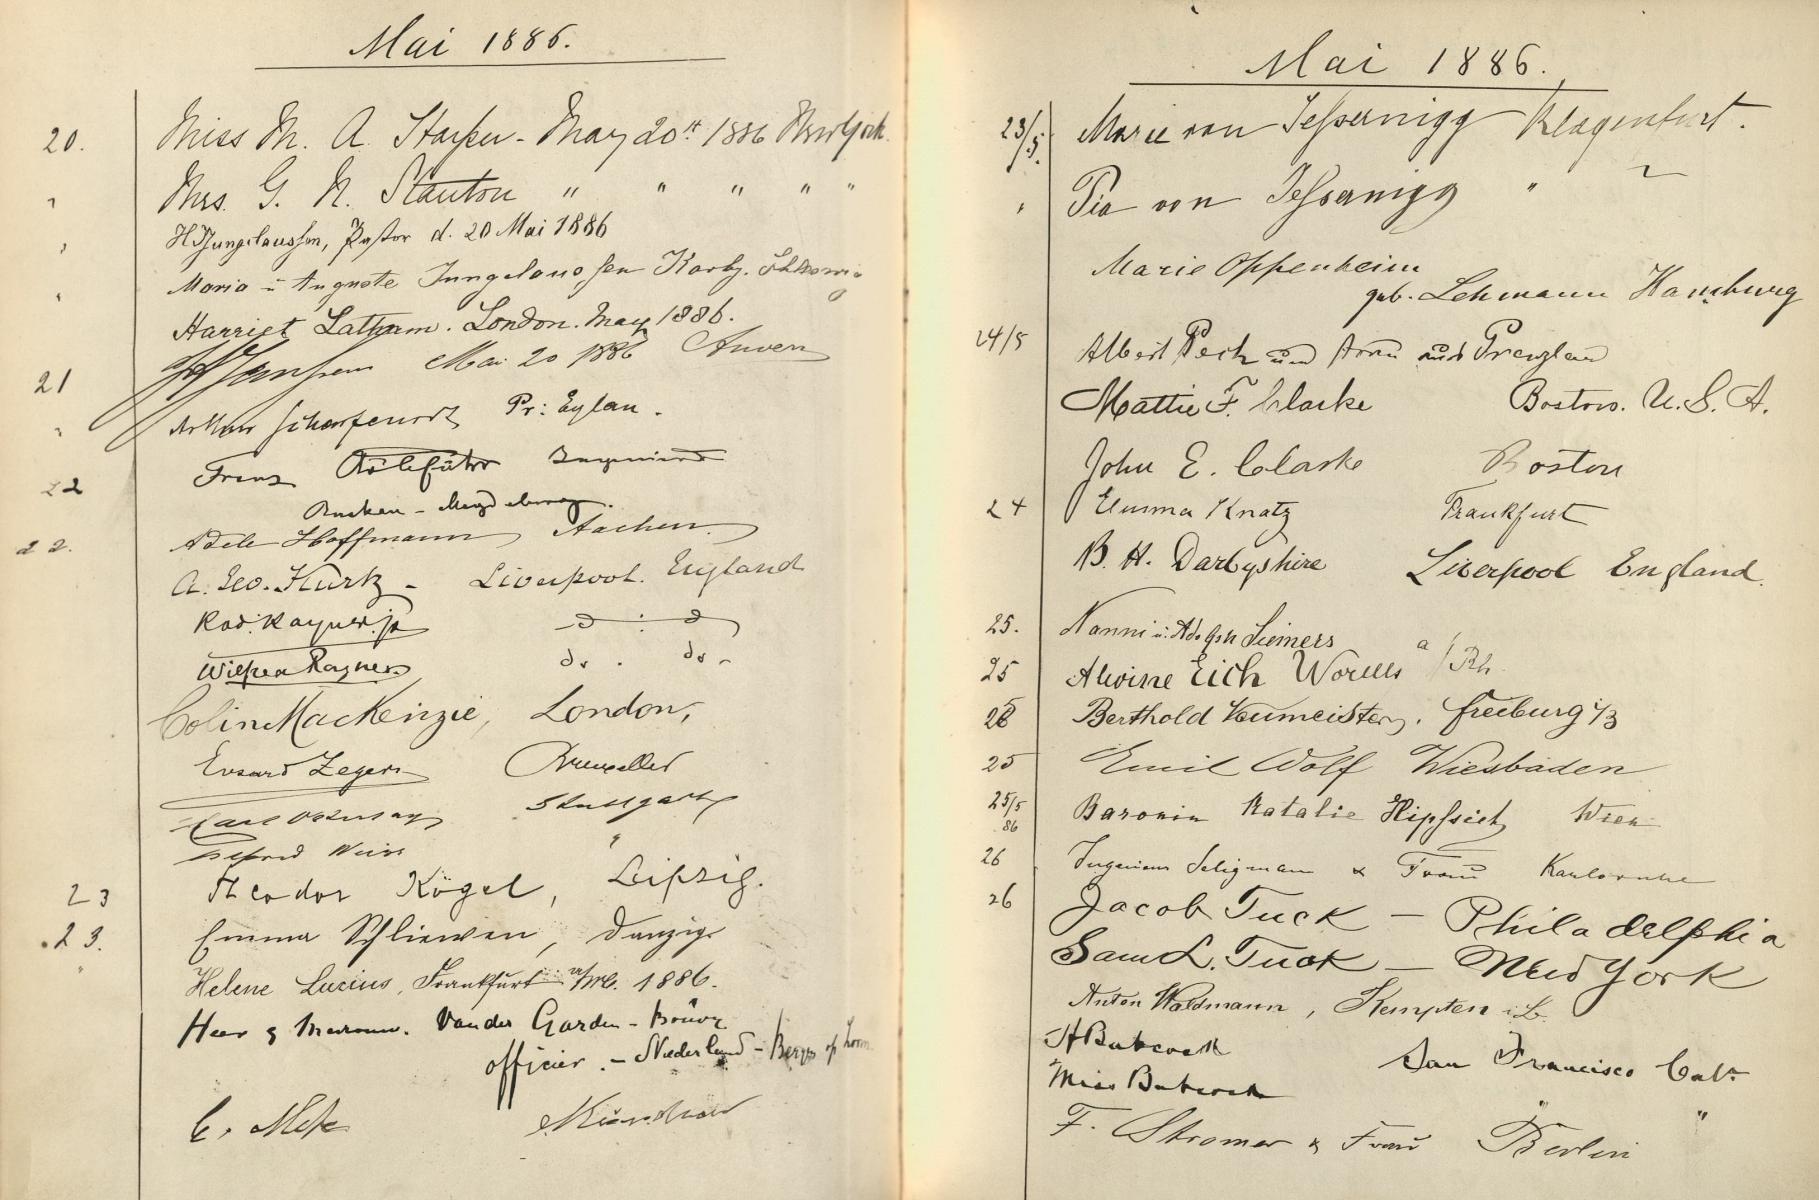 Mai 1886.
20. Miss M. A. Harper - May 20th 1886 New York.
" Mrs. G. N. Stanton " " " " "
" H. Jungclaussen, Pastor d. 20 Mai 1886
" Maria u Auguste Jungclaussen Karby.
Harriet Latham. London. May 1886.
21 Janssen Mai 20 1886
" Arthur Scharfenort Pr: Eylau.
22 Franz Ingenieur
Buckau - Magdeburg.
22. Adele Hoffmann, Aachen.
A. Geo. Kurtz - Liverpool. England
Rob. Rayner. jr do : do
Wilfred Rayner do . do -
Colin MacKenzie, London,
Evrard Zegers Bruxelles
Carl Stuttgart
Alfred Weiss "
23 Theodor Kögel, Leipzig.
23. Emma Schliewen, Danzig.
" Helene Lucius, Frankfurt a/M. 1886.
Heer & Mevrouw. Van der Garden -
officier. - Nederland - Bergen op Zoom
C. Metz München
Mai 1886.
23/5. Marie von Jessernigg Klagenfurt.
" Pia von Jessernigg "
Marie Oppenheim
geb. Lehmann Hamburg
24/5 Albert Pech und Frau aus Prenzlau
Mattie F. Clarke Boston. U. S. A.
John E. Clarke Boston
24 Emma Knatz Frankfurt
B. H. Darbyshire Liverpool England.
25. Nanni u. Adolph Siemers
25 Alwine Eich Worms a/Rh.
25 Berthold Neumeister, freiburg i/B
25 Emil Wolf Wiesbaden
25/5 86 Baronin Natalie Hipssich Wien
26 Ingenieur Seligmann & Frau Karlsruhe
26 Jacob Tuck - Philadelphia
Saml. Tuck - New York
Anton Waldmann, Kempten
H Babcock San Francisco Cal.
Miss Babcock " "
F. Stromer & Frau Berlin